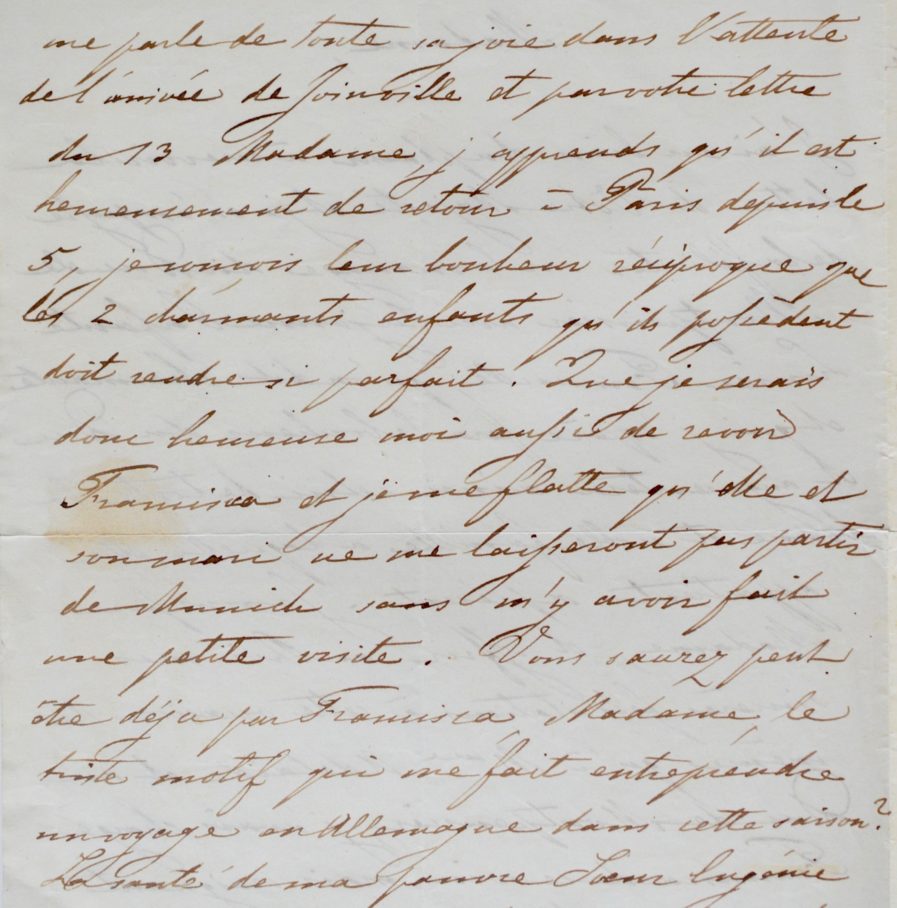 me parle de toute sa joie dans l'attente
de l'arrivée de Joinville et par votre lettre
du 13 Madame, j'apprends qu'il est
heureusement de retour à Paris depuis le
5, je conçois leur bonheur réciproque que
les 2 charmants enfants qu'ils possèdent
doit rendre si parfait. Que je serais
donc heureuse moi aussi de revoir
Francisca et je me flatte qu'elle et
son mari ne me laisseront pas partir
de Munich sans m'y avoir fait
une petite visite. Vous saurez peut
être déja par Francisca, Madame, le
triste motif qui me fait entreprendre
un voyage en Allemagne dans cette saison?
La santé de ma pauvre Soeur Eugénie